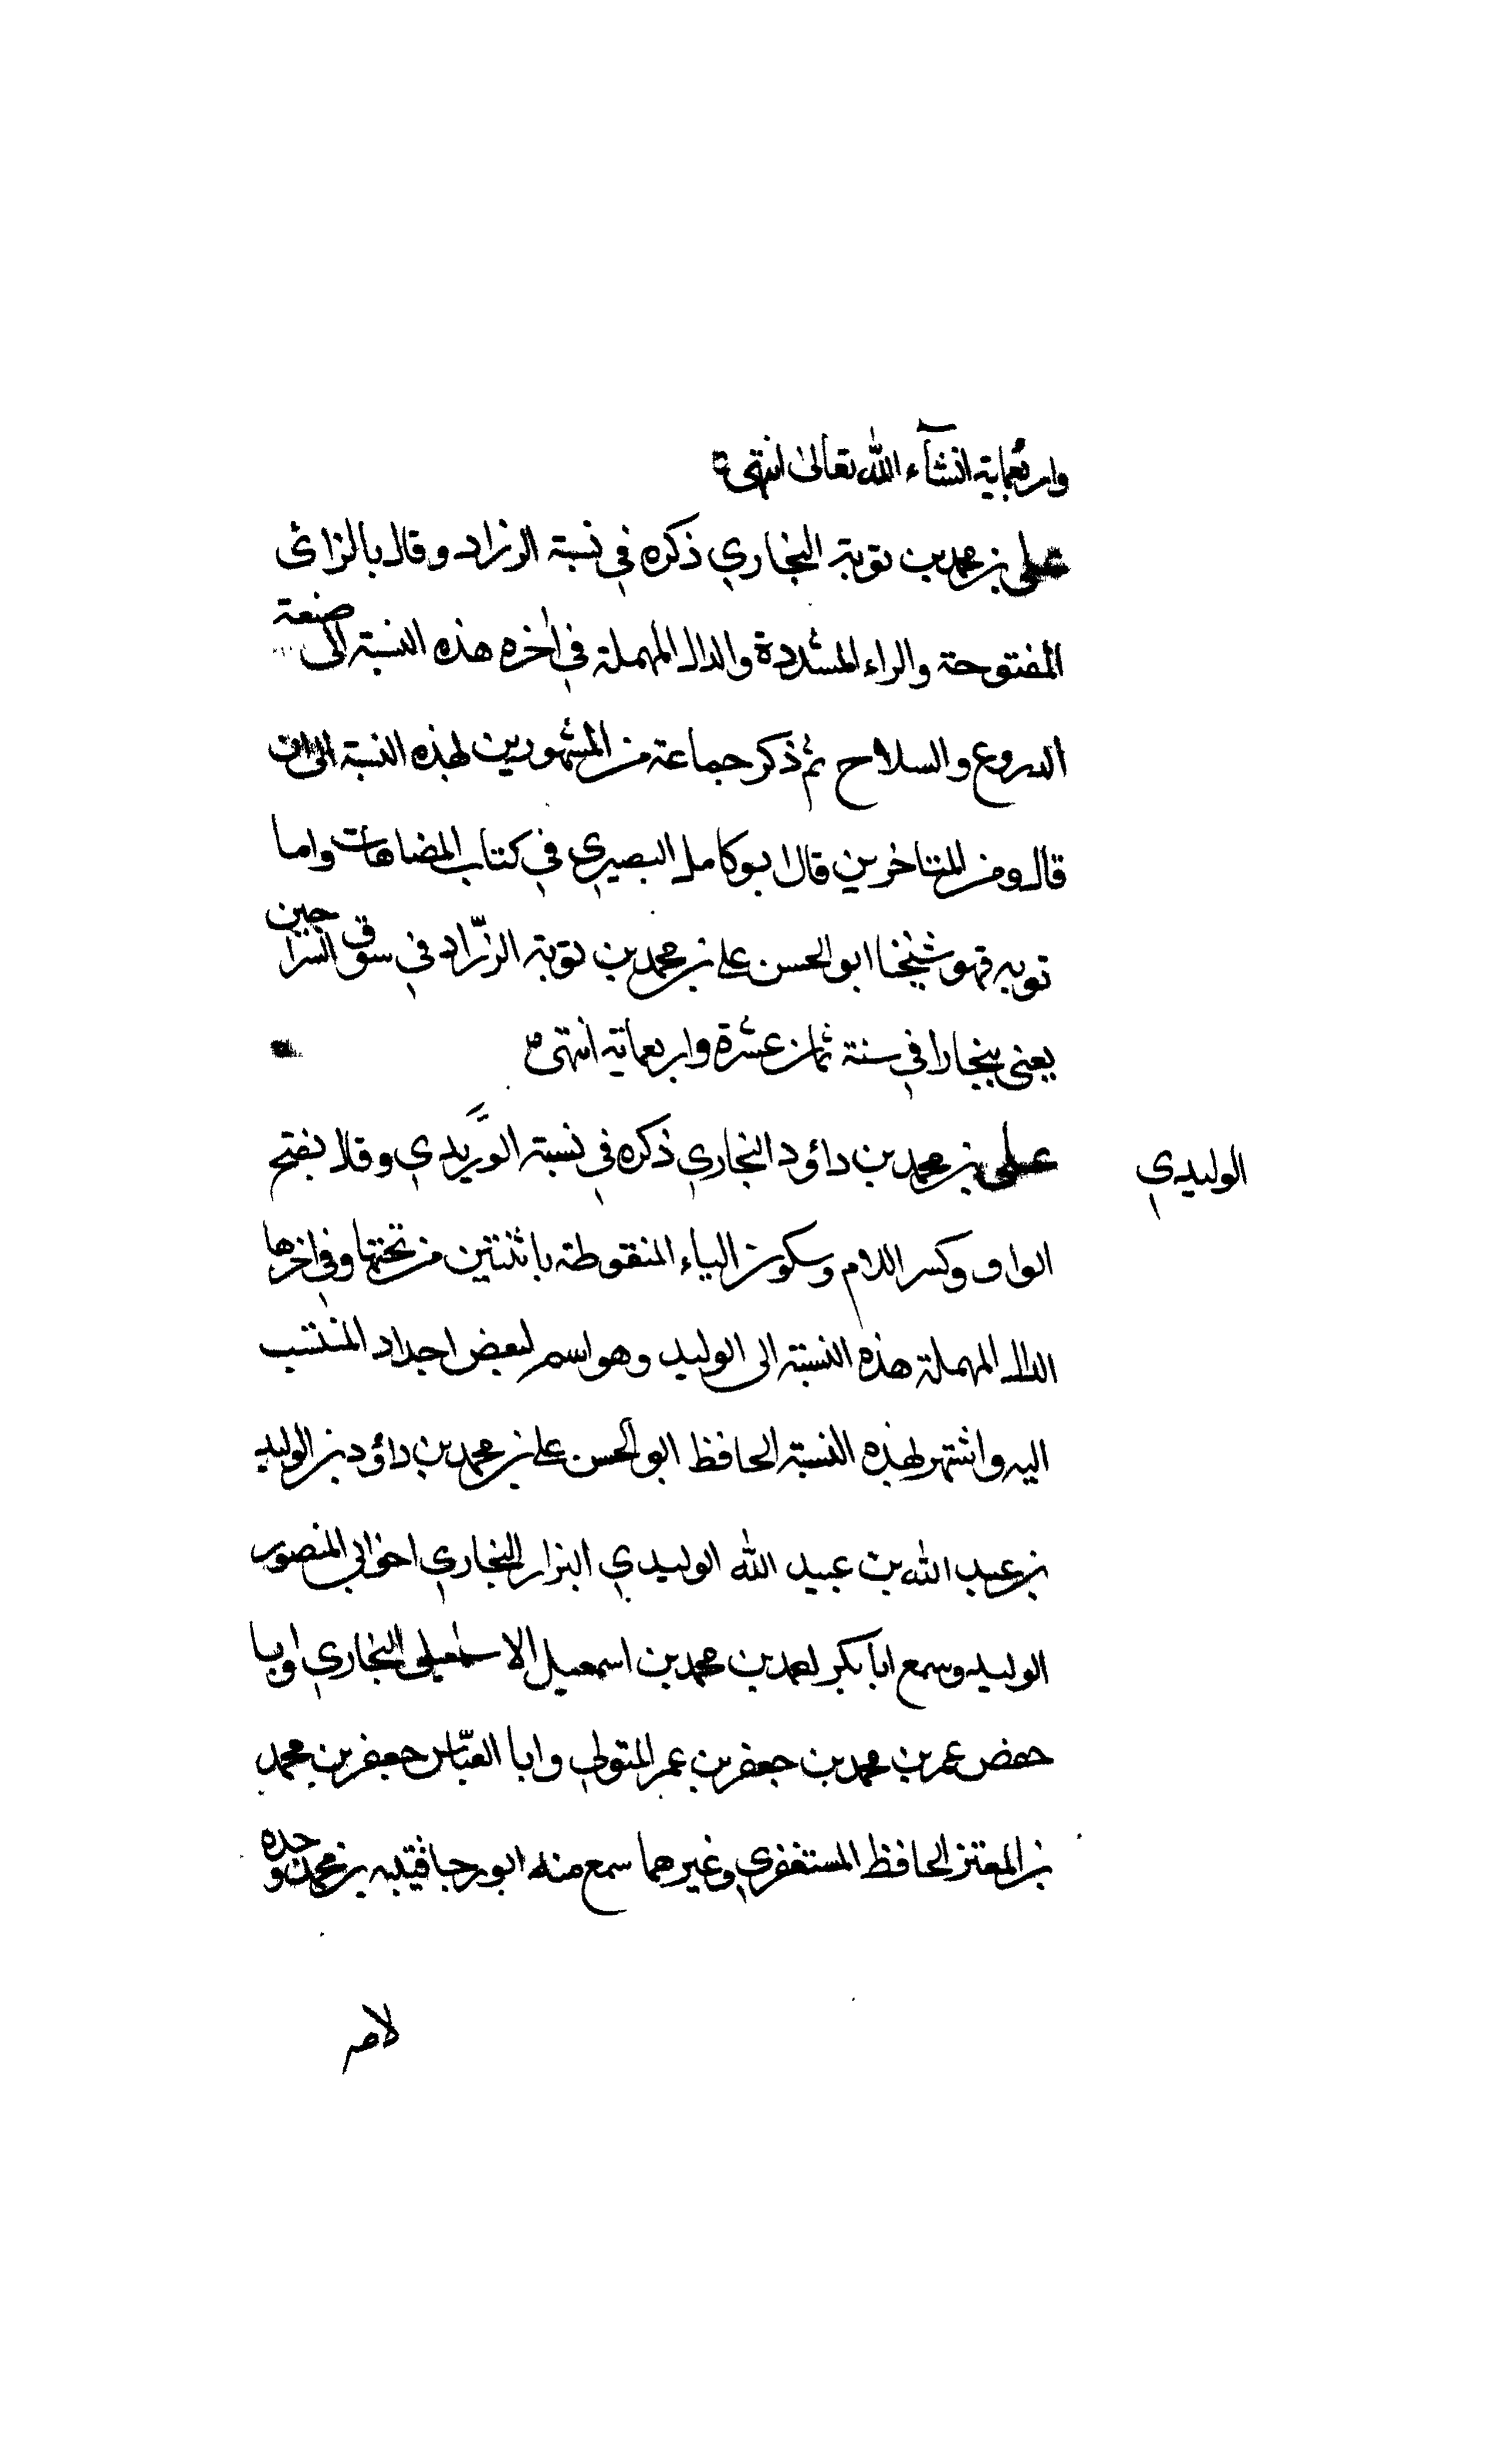 واربعماية انشآء الله تعالى انتهى
على بن محمد بن توبة البخاري ذكره في نسبة الزراد وقال بالزائ
المفتوحة والراء المشددة والدال المهملة في اخره هذه النسبة الى صنعة
الدروع والسلاح ثم ذكر جماعة من المشهورين لهذه النسبة الى ان
قال ومن المتاخرين قال ابو كامل البصيري في كتاب المضاهات واما
توبه فهو شيخنا ابو الحسن على بن محمد بن توبة الزرّاد في سوق السراجين
يعنى ببخارا في سنة ثمان عشرة واربعماية انتهى
الوليدي
على بن محمد بن داؤد البخاري ذكره في نسبة الوريدي وقال بفتح
الواو وكسر اللام وسكون الياء المنقوطة باثنتين من تحتها وفي اخرها
الدال المهملة هذه النسبة الى الوليد وهو اسم لبعض اجداد المنتسب
اليه واشتهر لهذه النسبة الحافظ ابو الحسن على بن محمد بن داؤد بن الوليد
بن عبد الله بن عبيد الله الوليدي البزار البخاري اخو ابي المنصور
الوليد وسمع ابا بكر احمد بن محمد بن اسمعيل الاسمعيلى البخاري وابا
حفص عمر بن محمد بن جعفر بن عمر المتولى وابا العبّاس جعفر بن محمد
بن المعتز الحافظ المستغفري وغيرهما سمع منه ابو رجا قتيبه بن محمد وجده
لامه